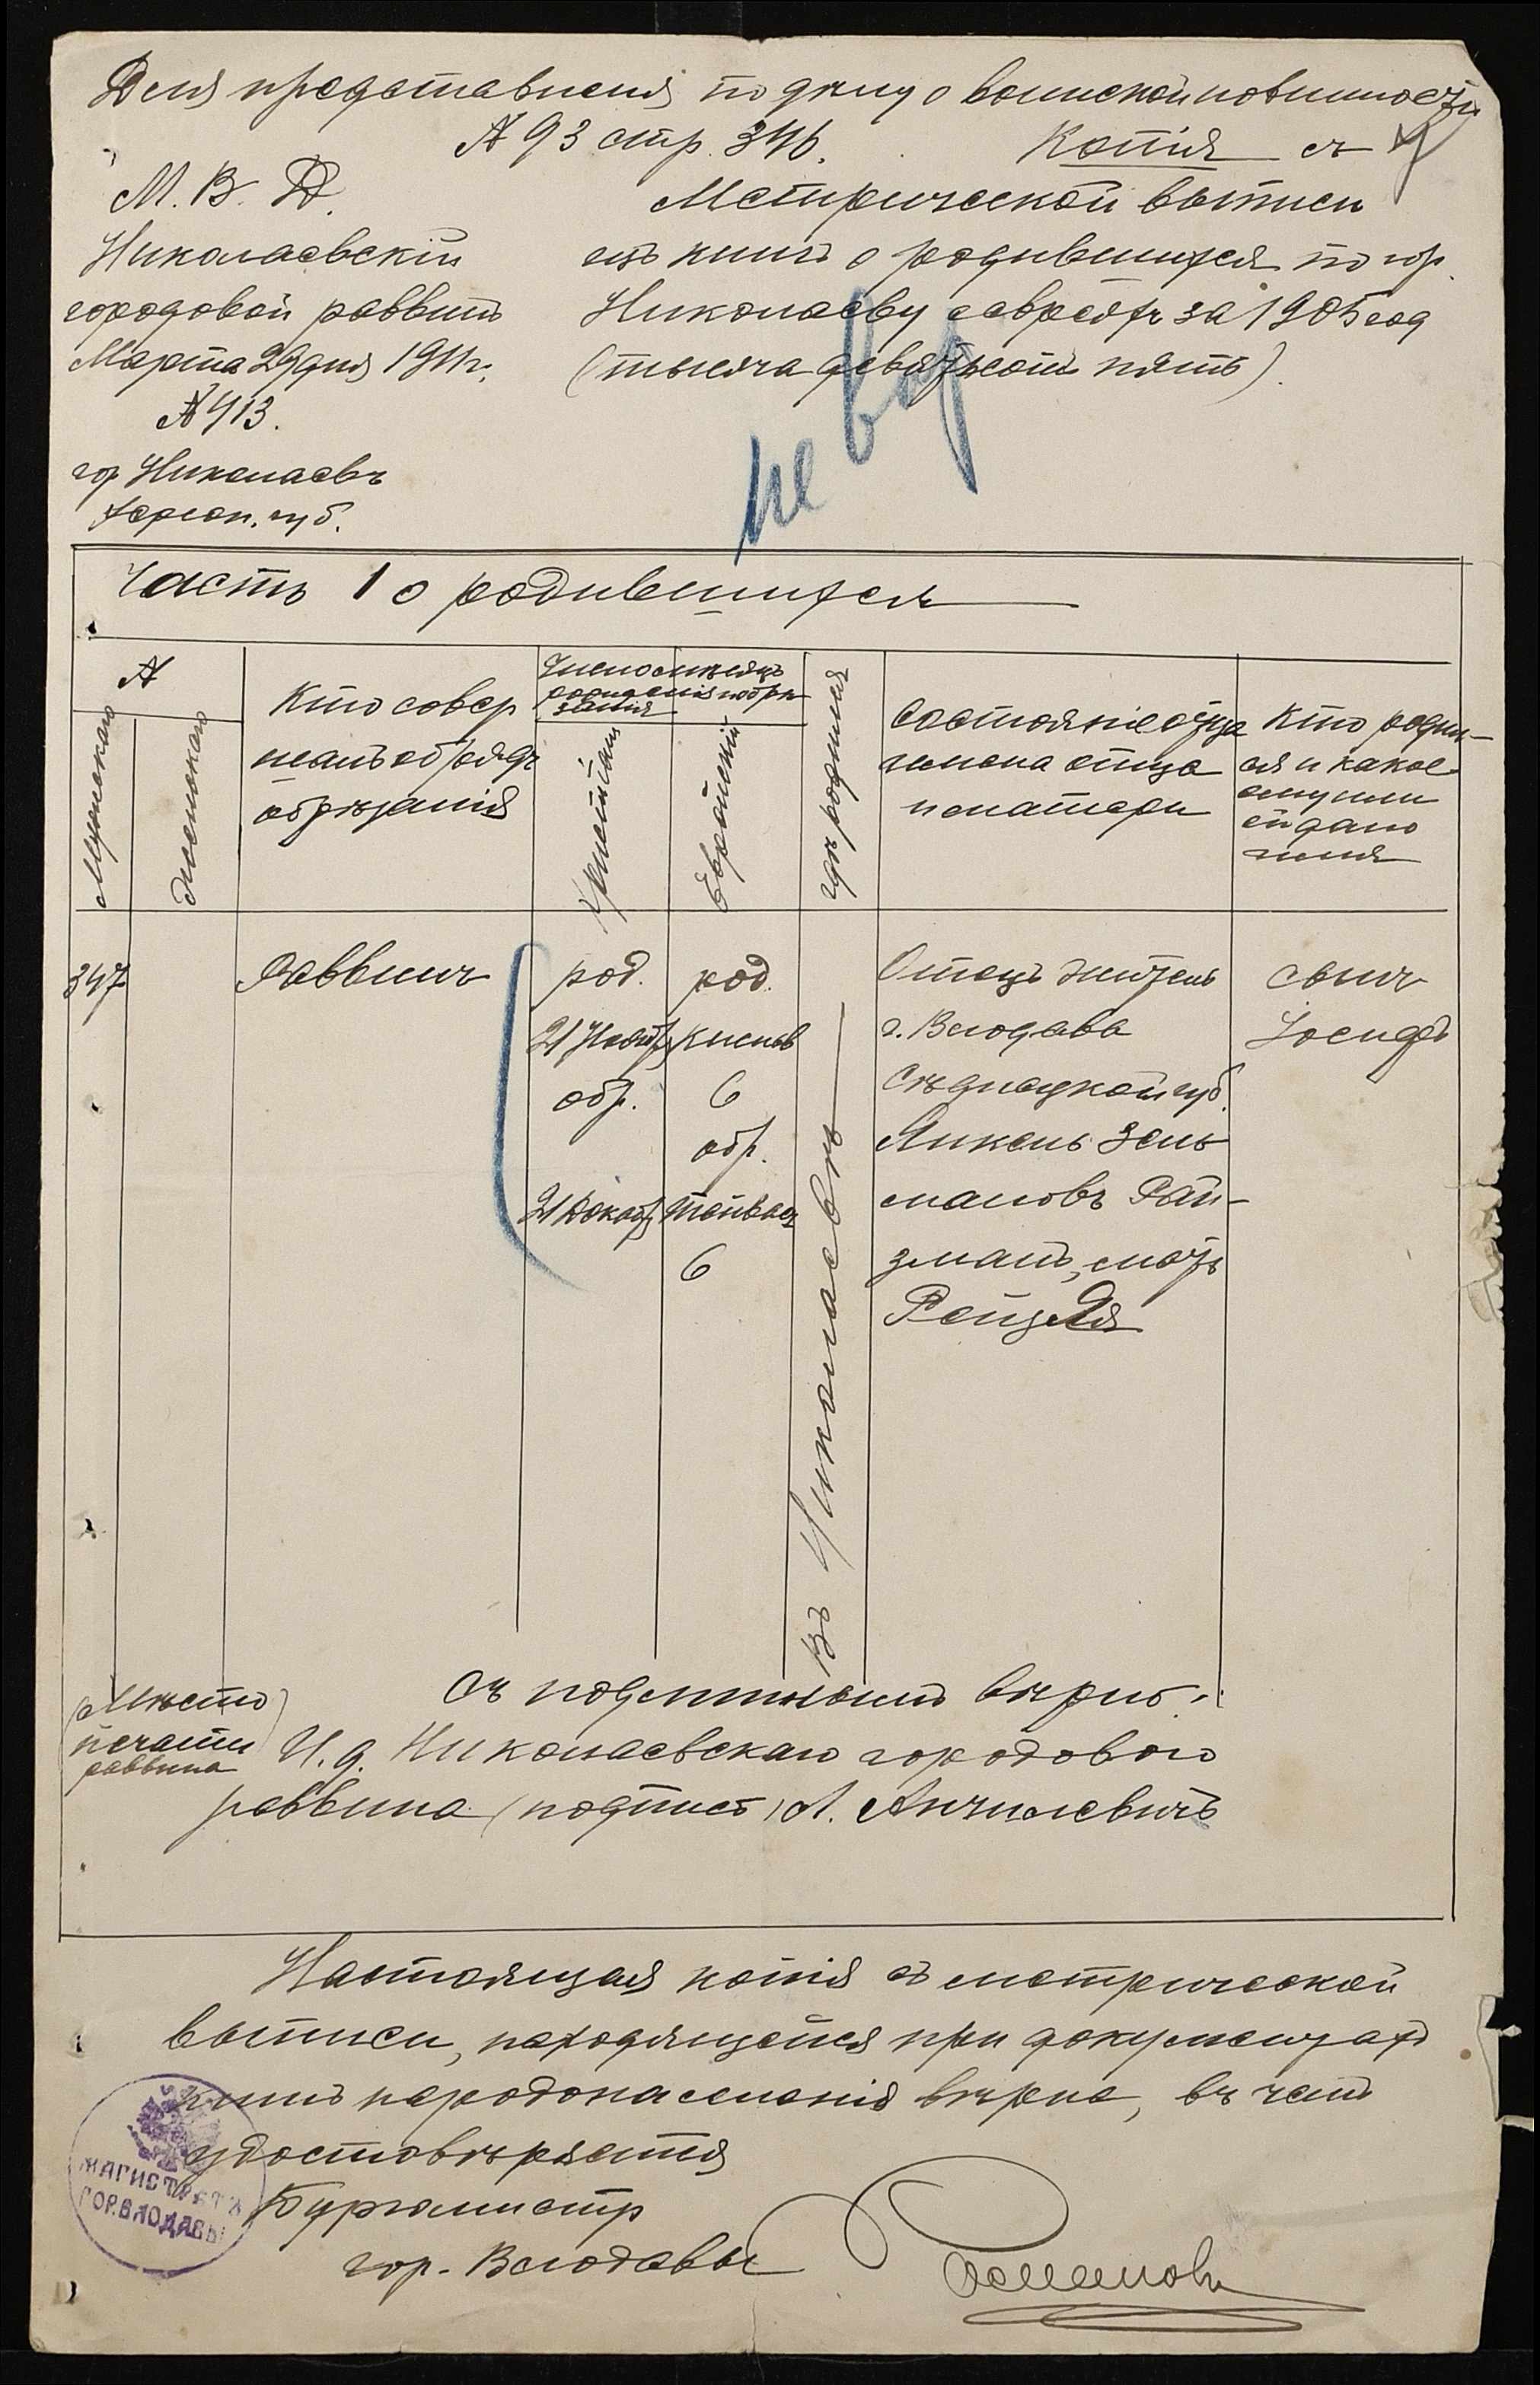 Для представленія по дѣлу о воинской повинности
№ 93 стр. 346. Копія съ
М. В. Д.
Николаевскій
городовой раввинъ
Марта 29 дня 1911 г.
№ 413.
гор. Николаевъ
Херсон. губ.
Метрической выписи
изъ книгъ о родившихся по гор.
Николаеву евреяхъ за 1905 год
(тысяча девятьсотъ пять).
не вѣр
Часть 1 о родившихся
№
Мужескаго
Женскаго
Кто совер
шалъ обрядъ
обрѣзанія
Число и мѣсяцъ
рожденія и обрѣ
занія
Христіанскій
Еврейскій
гдѣ родился
Состояніе отца
имена отца
и матери
Кто родил-
ся и какое
ему или
ей дано
имя
347
Раввинъ
род.
21 Ноября
обр.
21 Декабр
род.
Кислев
6
обр.
Тейвас
6
въ Николаевѣ
Отецъ житель
г. Влодава
Сѣдлецкой губ.
Янкель Зель
мановъ Рай-
зманъ, мать
Рейзля
сынъ
Іосифъ
(Мѣсто
печати
раввина)
Съ подлиннымъ вѣрно:
И. д. Николаевскаго городового
раввина (подпись) Л. Анчилевичъ
Настоящая копія съ метрической
выписи, находящейся при документахъ
книгъ народонаселенія вѣрна, въ чемъ
удостовѣряется
Бургомистр
гор. Влодавы
МАГИСТРАТЪ
ГОР. ВЛОДАВЫ